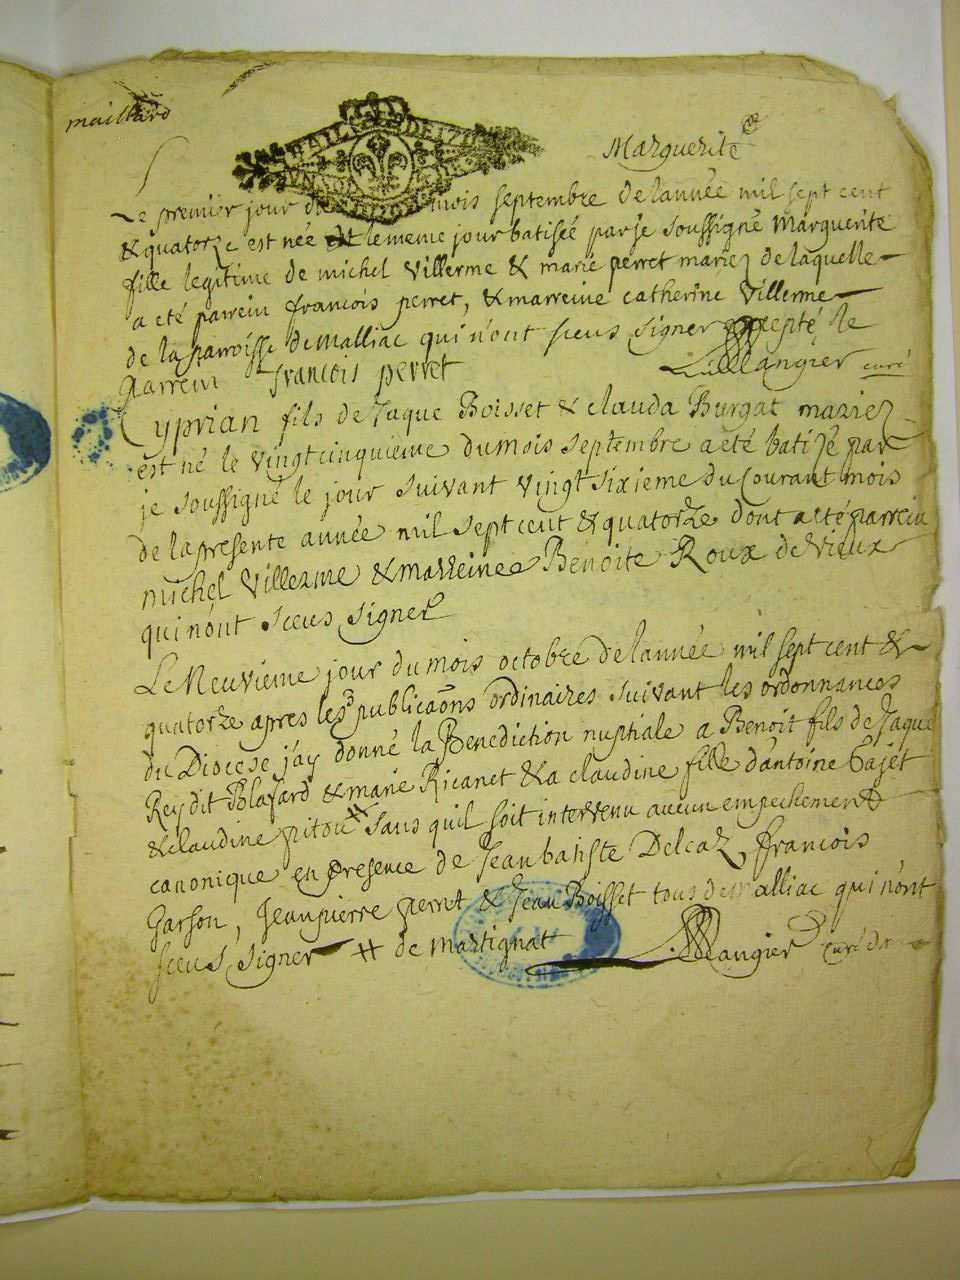 maillard
Marguerite
Le premier jour du mois septembre de lannée mil sept cent
& quatorze est née & le meme jour batisée par je soussigné Marguerite
fille legitime de michel Villerme & marie perret mariez de laquelle
a eté parrein francois perret, & marreine catherine Villerme
de la parroisse de Malliac qui n'ont sceus signer excepté le
parrein francois perret Mangier curé
Cyprian fils de Jaque Boisset & clauda Burgat mariez
est né le vingtcinquieme du mois septembre a eté batizé par
je soussigné le jour suivant vingt sixieme du courant mois
de la presente année mil sept cent & quatorze dont a eté parrein
michel Villerme & marreine Benoite Roux de vieux
qui n'ont sceus signer
Le Neuvieme jour du mois octobre de lannée mil sept cent &
quatorze apres les 3 publicaons ordinaires suivant les ordonnances
du Diocese j'ay donné la Benediction nuptiale a Benoit fils de Jaque
Rey dit Blafard & marie Ricanet & a claudine fille d'antoine Cajet
& claudine pitou # sans qu'il soit intervenu aucun empechement
canonique en presence de Jean batiste Delcaz, francois
Garson, Jean pierre perret & Jean Boisset tous de Malliac qui n'ont
sceus signer # de martignat Mangier curé dt